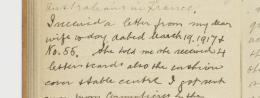 Australians in France.
I received a letter from my dear
wife today dated March 19. 1917 &
No. 56. She told me she received 4
letters & cards also the cushion
cover & table centre I got sent